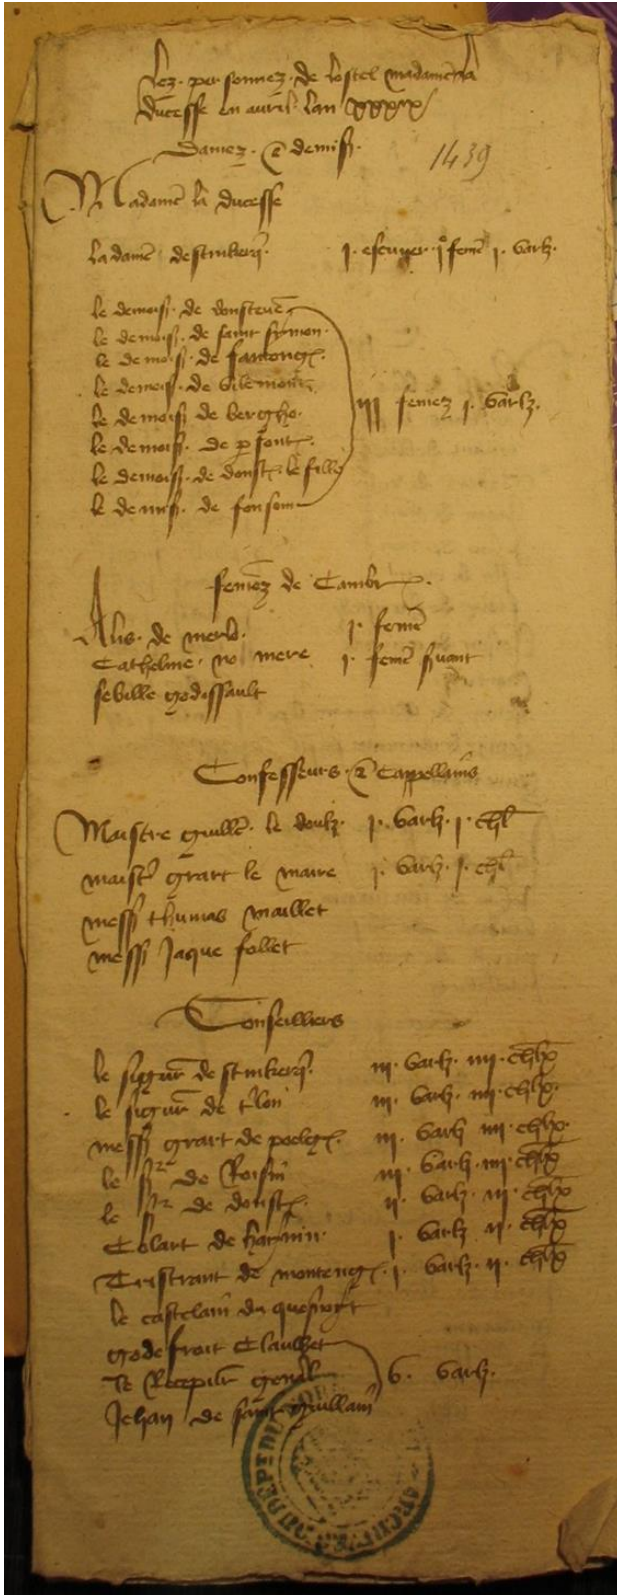 Lez personnez de lostel madame la
ducesse en avril lan xxxix
Damez & demis.
1439
Madame la ducesse
la dame destinkerq. j. escuyer. j femme j. varlz.
le demois. de donstene
le demois. de saint symon.
le demois. de
le demois. de
le demois de berghe.
le demois. de
le demois. de donst. le fille
le demis. de fonsom
iij femez j. varlz.
femez de Cambr.
Alis. de merb. j. feme
Catheline. no mere j. feme svant
sebille godissault
Confesseurs & Cappellains
Maistre guille. le doulz. j. varlz. j. chl
maistre grart le maire j. varlz. j. chl
mess thumas maillet
mess Jaque follet
Conseilliers
le sigur de stinkerq. iij. varlz. iiij. chlx
le sigur de trlon iij. varlz. iiij. chlx.
mess grart de poelg. iij. varlz iiij. chlx.
le sr de Roisin iij. varlz. iiij. chlx
le sr de donst. ij. varlz. iij. chlx
Colart de j. varlz ij. chlx
Tristrant de monteng. j. varlz. ij. chlx
le castelain du quesnoyt
godefroit Clauwet
le Recepvr genl
Jehan de saint guillain
6. varlz.
ARCHIVES DU DEP DU NORD